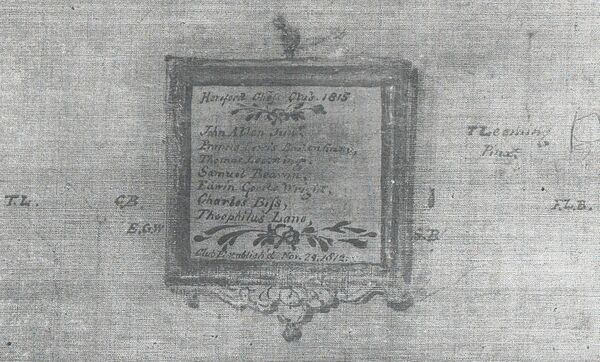 Hereford Chess Club. 1815.
John Allen Junr.
Francis Lewis Bodenham,
Thomas Leeming,
Samuel Beavan,
Edwin Goode Wright,
Charles Biſs,
Theophilus Lane,
Club Established Nov. 24. 1812.
T Leeming
Pinxt.
T.L.
C.B.
E.G.W
S.B
F.L.B.